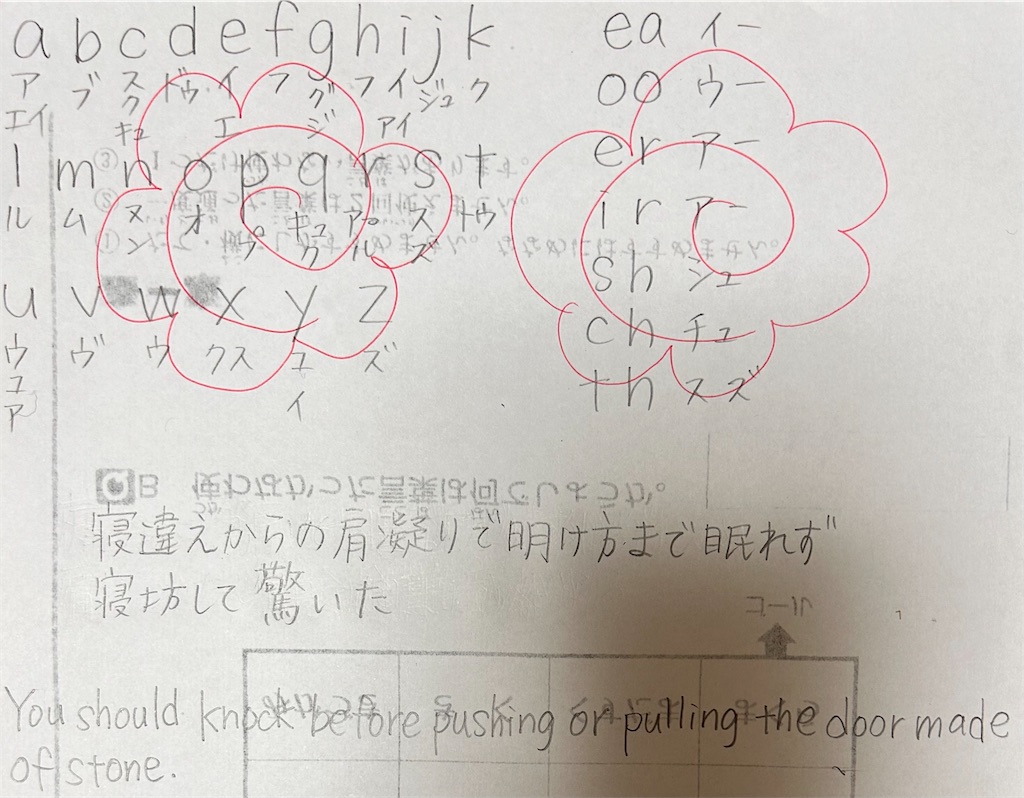 a b c d e f g h i j k
ア ブ ス ドゥ イ フ グ フ イ ジュ ク
エイ ク エ ジ アイ
キュ
l m n o p q r s t
ル ム ヌ オ プ キュ ア ス トゥ
ン ク ル ズ
u v w x y z
ウ ヴ ウ クス ユ ズ
ユ イ
ア
ea イー
oo ウー
er アー
ir アー
sh シュ
ch チュ
th スズ
B 使わなかった言葉は何でしょうか。
寝違えからの肩凝りで明け方まで眠れず
寝坊して驚いた
ゴール
You should knock before pushing or pulling the door made
of stone.